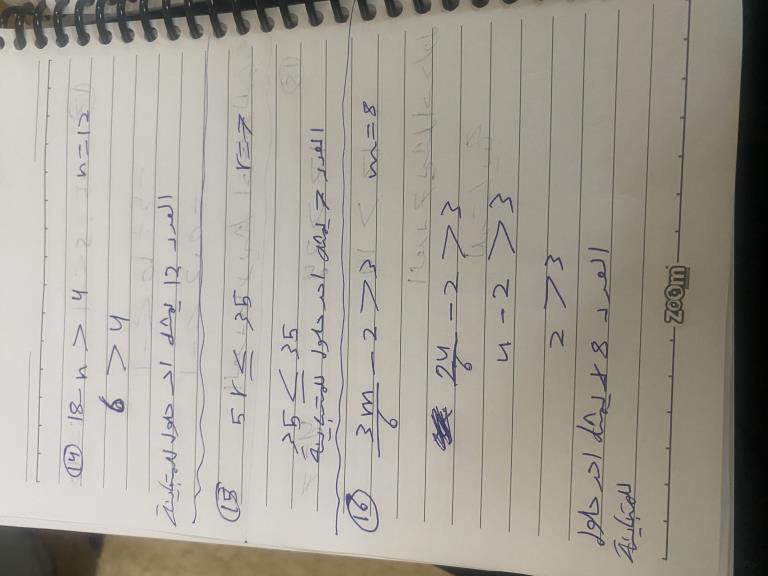 (14) 18-n > 4 n=12
6 > 4
العدد 12 يمثل احد حلول المتباينة
(15) 5r ≤ 35 r=7
35 ≤ 35
العدد 7 يمثل احد حلول المتباينة
(16) 3m/6 - 2 > 3 m=8
24/6 - 2 > 3
4 - 2 > 3
2 > 3
العدد 8 لا يمثل احد حلول
المتباينة
zoom